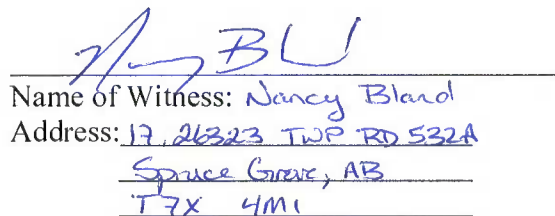 Name of Witness: Nancy Bland
Address: 17, 26323 TWP RD 532A
Spruce Grove, AB
T7X 4M1